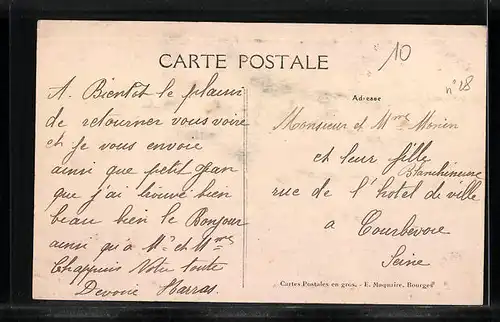 CARTE POSTALE
10
n° 28
A. Bientot le plaisir
de retourner vous voire
et je vous envoie
ainsi que petit Jean
que j'ai trouvé bien
beau bien le Bonjour
ainsi qu'a Mr et Mme
Chappuis Votre toute
Devoué Harras.
Adresse
Monsieur et Mme Monin
et leur fille
Blanchisseuse
rue de l'hotel de ville
a Courbevoie
Seine
Cartes Postales en gros. - E. Maquaire, Bourges